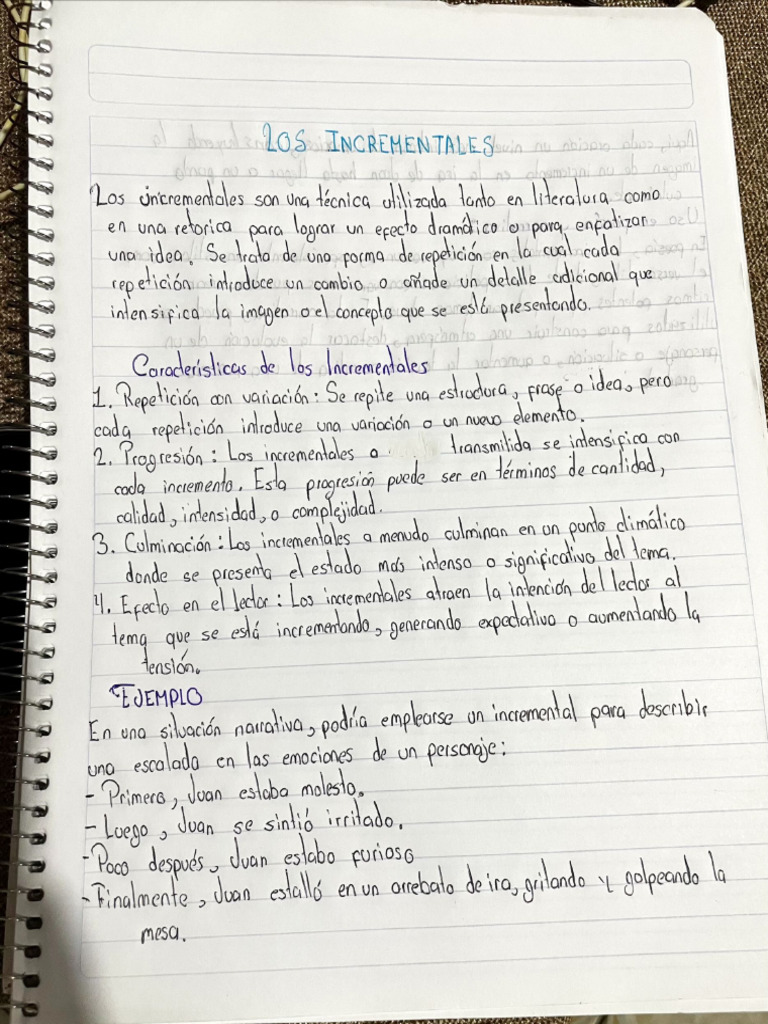 LOS INCREMENTALES
Los incrementales son una técnica utilizada tanto en literatura como
en una retorica para lograr un efecto dramático o para enfatizar
una idea. Se trata de una forma de repetición en la cual cada
repetición introduce un cambio o añade un detalle adicional que
intensifica la imagen o el concepto que se está presentando.
Características de los Incrementales
1. Repetición con variación: Se repite una estructura, frase o idea, pero
cada repetición introduce una variación o un nuevo elemento.
2. Progresión: Los incrementales a transmitida se intensifica con
cada incremento. Esta progresión puede ser en términos de cantidad,
calidad, intensidad, o complejidad.
3. Culminación: Los incrementales a menudo culminan en un punto climático
donde se presenta el estado más intenso o significativo del tema.
4. Efecto en el lector: Los incrementales atraen la intención del lector al
tema que se está incrementando, generando expectativa o aumentando la
tensión.
EJEMPLO
En una situación narrativa, podría emplearse un incremental para describir
una escalada en las emociones de un personaje:
- Primero, Juan estaba molesto.
- Luego, Juan se sintió irritado.
- Poco después, Juan estaba furioso
- Finalmente, Juan estalló en un arrebato de ira, gritando y golpeando la
mesa.